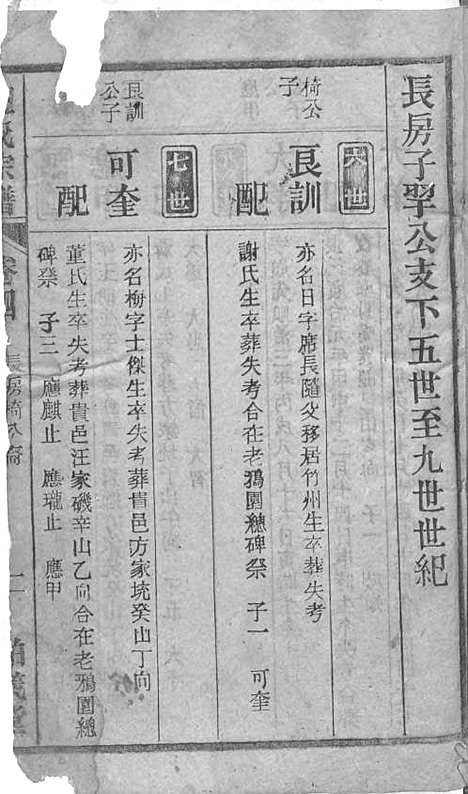 長房子翆公支下五世至九世世紀
六世
椅公子
艮訓
亦名日字席長隨父移居竹州生卒葬失考
配
謝氏生卒葬失考合在老鴉園總碑祭 子一 可奎
七世
艮訓公子
可奎
亦名榭字士傑生卒失考葬貴邑方家坑癸山丁向
配
董氏生卒失考葬貴邑汪家磯辛山乙向合在老鴉園總
碑祭 子三 應麒止 應瓏止 應甲
氏宗譜
卷四
長房椅公裔